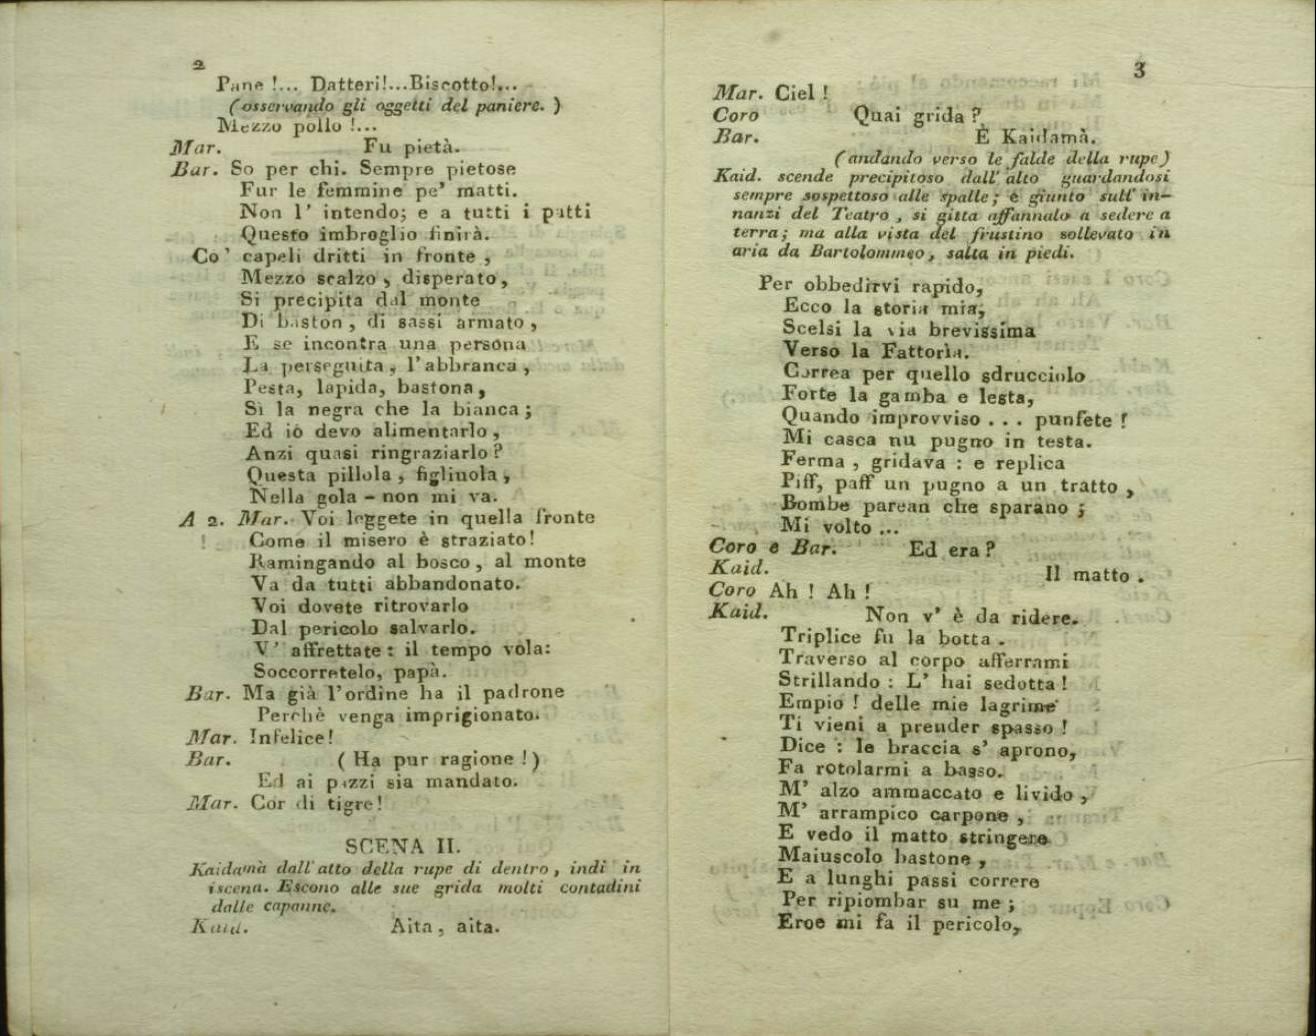 2
Pane !... Datteri!...Biscotto!...
(osservando gli oggetti del paniere. )
Mezzo pollo !...
Mar. Fu pietà.
Bar. So per chi. Sempre pietose
Fur le femmine pe' matti.
Non l' intendo; e a tutti i patti
Questo imbroglio finirà.
Co' capeli dritti in fronte ,
Mezzo scalzo , disperato,
Si precipita dal monte
Di baston , di sassi armato ,
E se incontra una persona
La perseguita , l'abbranca ,
Pesta, lapida, bastona ,
Sì la negra che la bianca ;
Ed io devo alimentarlo ,
Anzi quasi ringraziarlo ?
Questa pillola , figliuola ,
Nella gola - non mi va.
A 2. Mar. Voi leggete in quella fronte
Come il misero è straziato !
Ramingando al bosco , al monte
Va da tutti abbandonato.
Voi dovete ritrovarlo
Dal pericolo salvarlo.
V' affrettate : il tempo vola:
Soccorretelo, papà.
Bar. Ma già l'ordine ha il padrone
Perchè venga imprigionato.
Mar. Infelice!
Bar. ( Ha pur ragione ! )
Ed ai pazzi sia mandato.
Mar. Cor di tigre!
SCENA II.
Kaidamà dall'alto della rupe di dentro , indi in
iscena. Escono alle sue grida molti contadini
dalle capanne.
Kaid. Aita , aita.
3
Mar. Ciel !
Coro Quai grida ?
Bar. È Kaidamà.
(andando verso le falde della rupe)
Kaid. scende precipitoso dall' alto guardandosi
sempre sospettoso alle spalle ; e giunto sull' in-
nanzi del Teatro , si gitta affannato a sedere a
terra ; ma alla vista del frustino sollevato in
aria da Bartolommeo , salta in piedi.
Per obbedirvi rapido,
Ecco la storia mia,
Scelsi la via brevissima
Verso la Fattorìa.
Correa per quello sdrucciolo
Forte la gamba e lesta,
Quando improvviso . . . punfete !
Mi casca nu pugno in testa.
Ferma , gridava : e replica
Piff, paff un pugno a un tratto ,
Bombe parean che sparano ;
Mi volto ...
Coro e Bar. Ed era ?
Kaid. Il matto .
Coro Ah ! Ah !
Kaid. Non v' è da ridere.
Triplice fu la botta .
Traverso al corpo afferrami
Strillando : L' hai sedotta !
Empio ! delle mie lagrime
Ti vieni a prender spasso !
Dice : le braccia s' aprono,
Fa rotolarmi a basso.
M' alzo ammaccato e livido ,
M' arrampico carpone ,
E vedo il matto stringere
Maiuscolo bastone ,
E a lunghi passi correre
Per ripiombar su me ;
Eroe mi fa il pericolo,